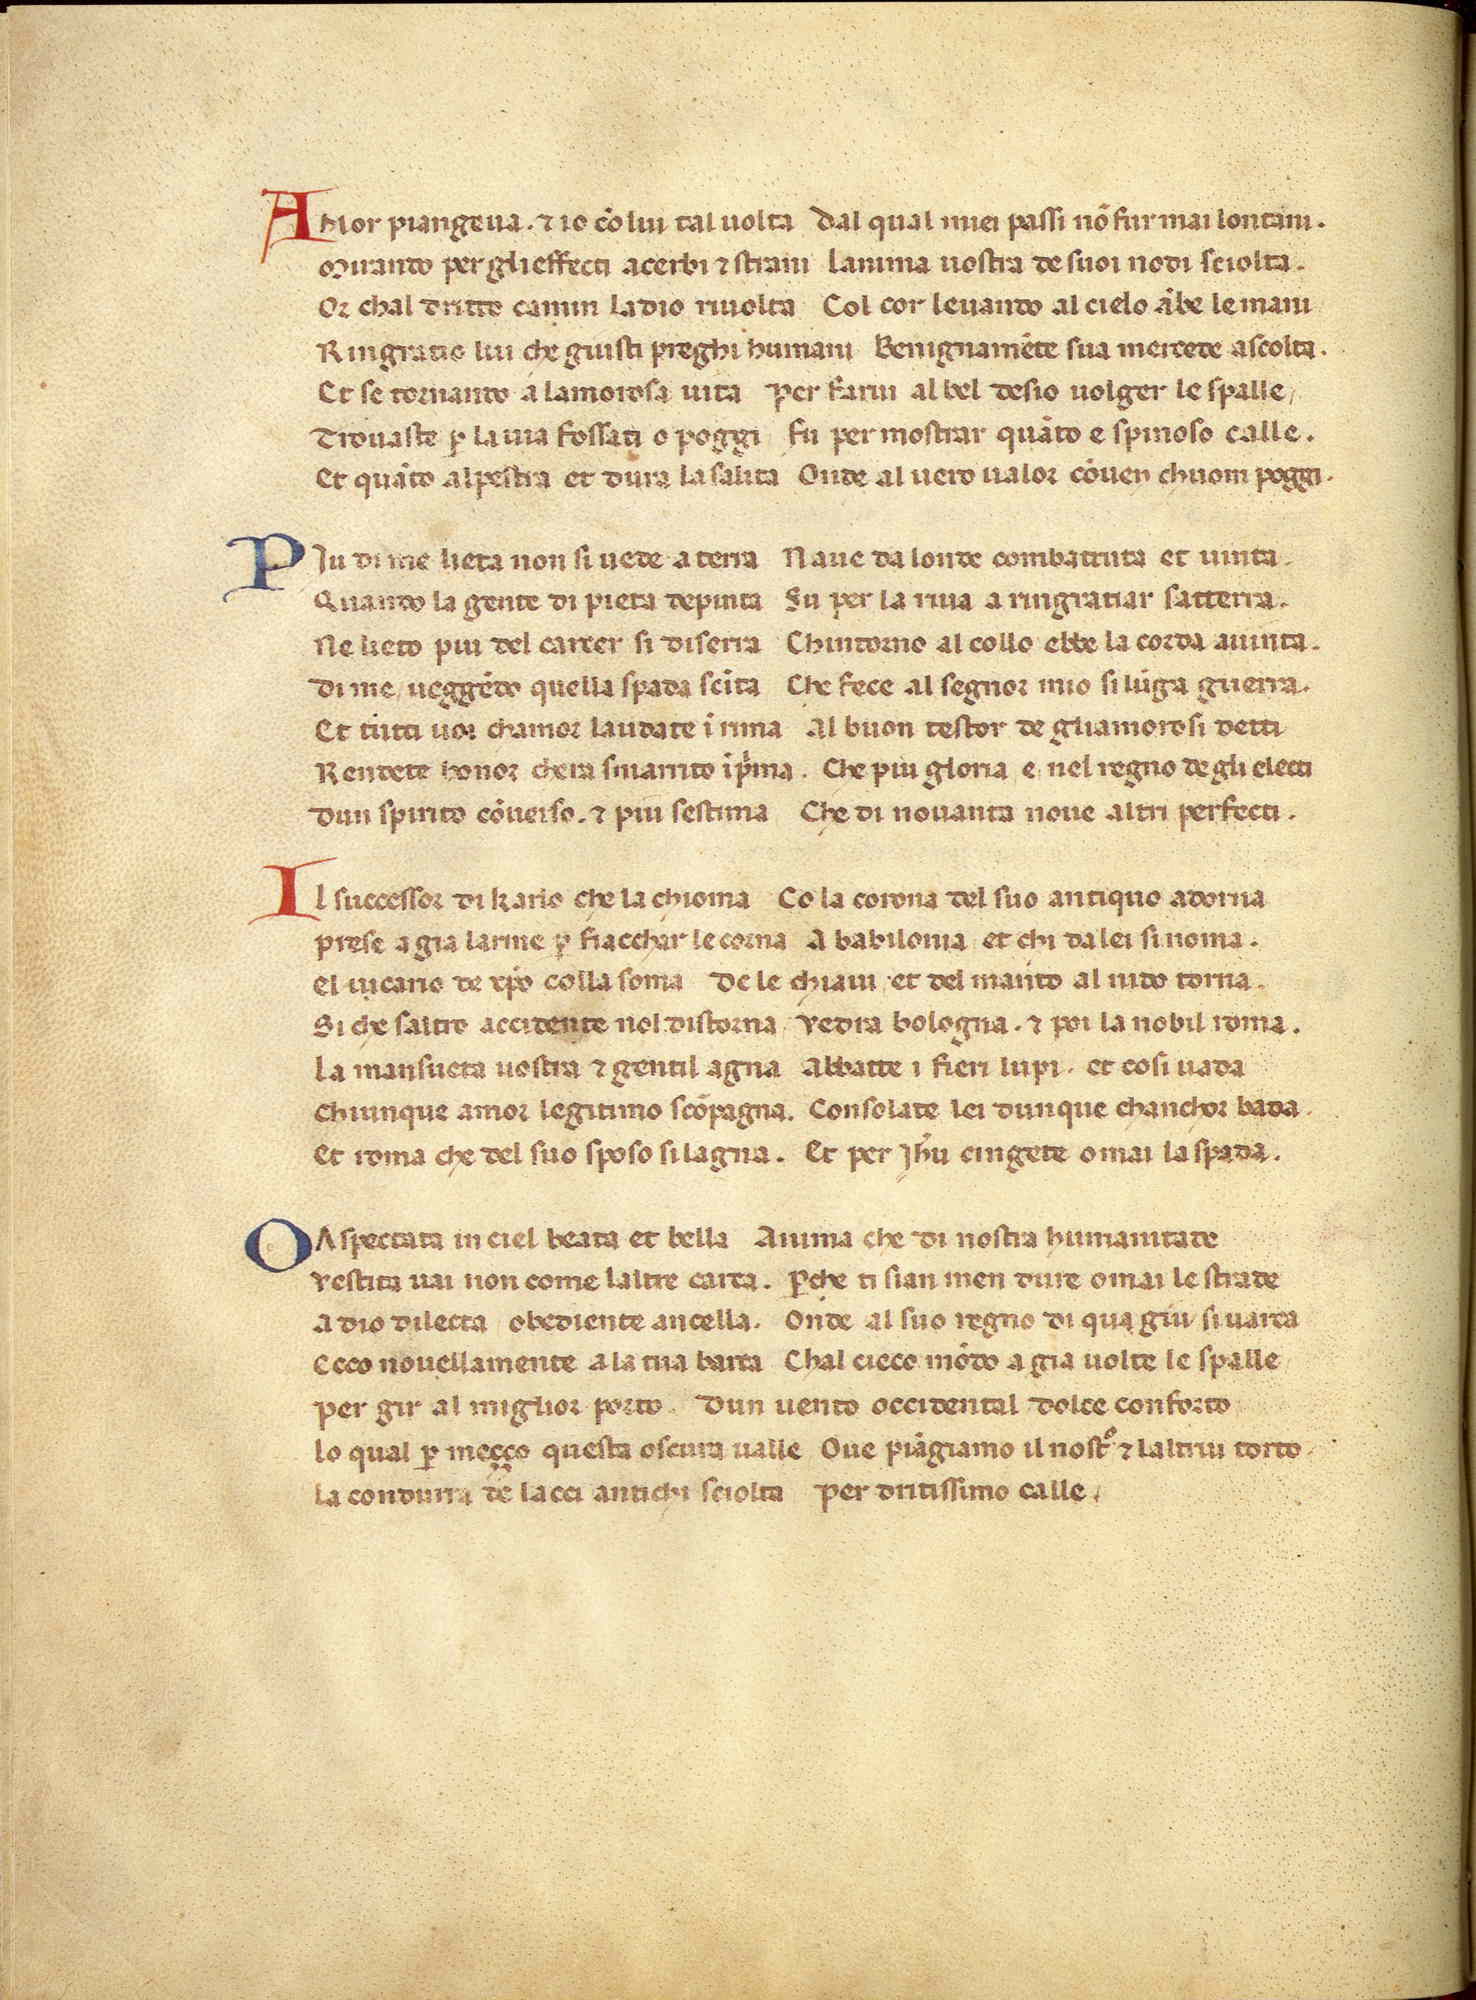 AMor piangeua. ⁊ io cō lui tal uolta   Dal qual miei passi nō fur mai lontani.
Mirando per gli effecti acerbi ⁊ strani   Lanima uostra de suoi nodi sciolta.
Or chal dritto camin la dio riuolta   Col cor leuando al cielo ābe le mani
Ringratio lui che giusti preghi humani   Benignamēte sua mercede ascolta.
Et se tornando a lamorosa uita   Per farui al bel desio uolger le spalle/
Trouaste ꝑ la uia fossati o poggi   Fu per mostrar quāto e spinoso calle.
Et quāto alpestra et dura la salita   Onde al uero ualor cōuen chuom poggi.
PIu di me lieta non si uede a terra   Naue da londe combattuta et uinta.
Quando la gente di pieta depinta   Su per la riua a ringratiar satterra.
Ne lieto piu del carcer si diserra   Chintorno al collo ebbe la corda auinta.
Di me/ ueggēdo quella spada scīta   Che fece al segnor mio si lūga guerra.
Et tutti uoi chamor laudate ī rima   Al buon testor de gliamorosi detti
Rendete honor chera smarrito īp̄ma.   Che piu gloria e/ nel regno de gli electi
Dun spirito cōuerso. ⁊ piu sestima   Che di nouanta noue altri perfecti.
Il successor di karlo che la chioma   Co la corona del suo antiquo adorna
Prese a gia larme ꝑ fiacchar le corna   A babilonia/ et chi da lei si noma.
El uicario de xp̄o colla soma   De le chiaui/ et del manto al nido torna.
Si che saltro accidente nol distorna/   Vedra bologna. ⁊ poi la nobil roma.
La mansueta uostra ⁊ gentil agna   Abbatte i fieri lupi. et cosi uada
Chiunque amor legitimo scōpagna.   Consolate lei dunque chanchor bada.
Et roma che del suo sposo si lagna.   Et per Jh̄u cingete omai la spada.
O Aspectata in ciel beata et bella   Anima che di nostra humanitate
Vestita uai non come laltre carca.   ꝑche ti sian men dure omai le strade
A dio dilecta/ obediente ancella.   Onde al suo regno di qua giu/ si uarca
Ecco nouellamente a la tua barca   Chal cieco mōdo a gia uolte le spalle
Per gir al miglior porto.   Dun uento occidental dolce conforto/
Lo qual ꝑ meçço questa oscura ualle   Oue piāgiamo il nostrº ⁊ laltrui torto.
La condurra de lacci antichi sciolta   Per dritissimo calle/